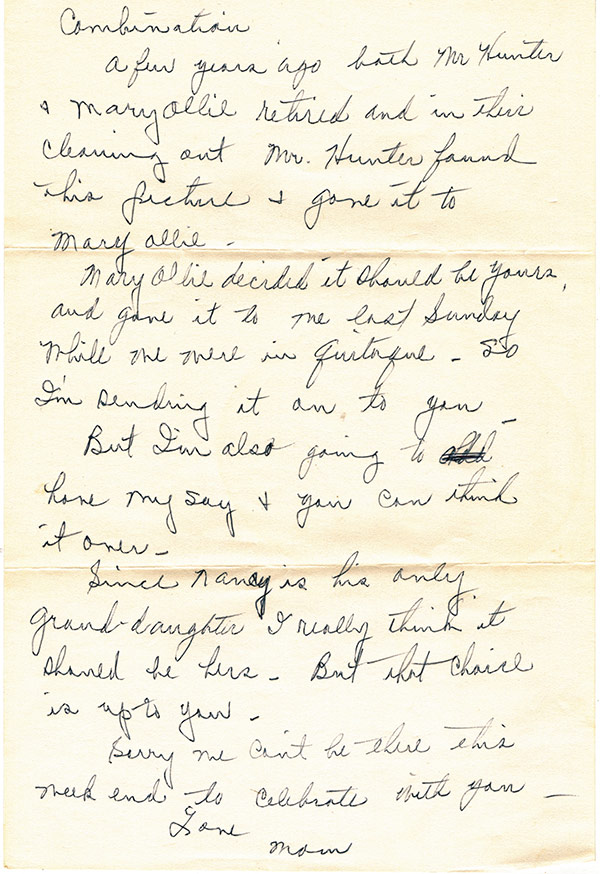 Combination
A few years ago both Mr Hunter
& Mary Ollie retired and in their
cleaning out Mr. Hunter found
this picture & gave it to
Mary Ollie -
Mary Ollie decided it should be yours,
and gave it to me last Sunday
while we were in Quitaque - So
I'm sending it on to you -
But I'm also going to
have my say & you can think
it over -
Since Nancy is his only
grand-daughter I really think it
should be hers - But that choice
is up to you -
Sorry we can't be there this
week end to celebrate with you -
Love
Mom